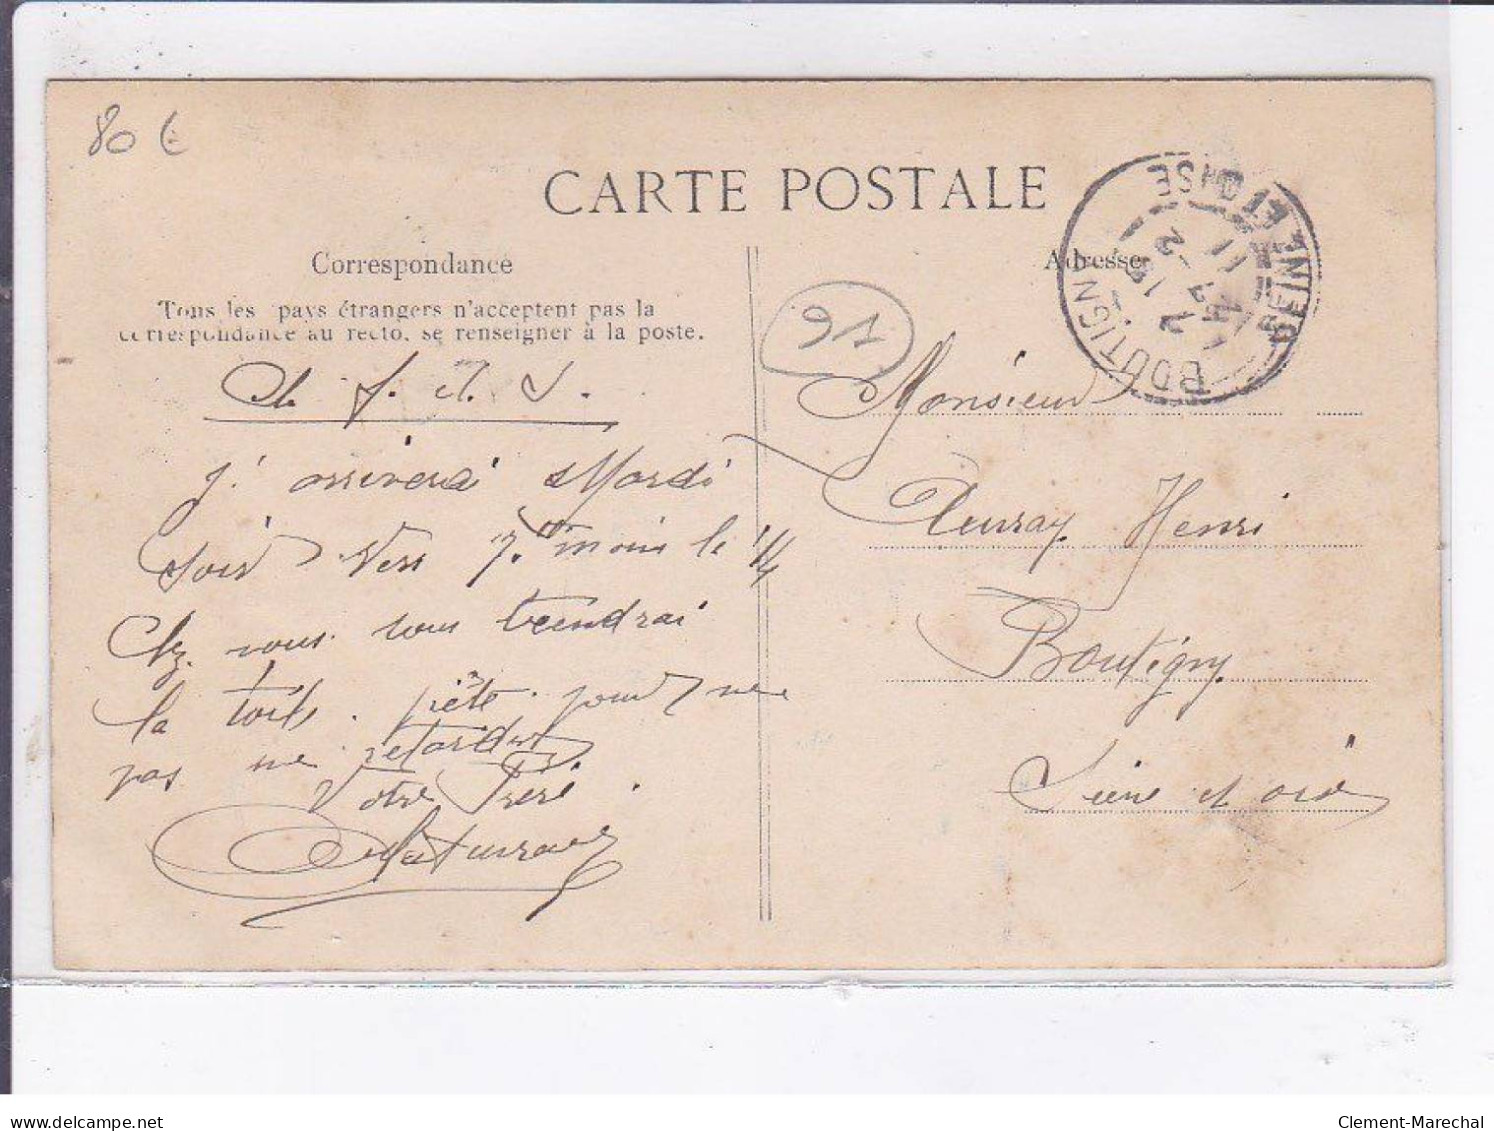 80 €
CARTE POSTALE
Correspondance
Tous les pays étrangers n'acceptent pas la
correspondance au recto, se renseigner à la poste.
Adresse
BOUTIGNY
SEINE ET OISE
91
Monsieur
Auray Henri
Boutigny
Seine et oise
j' arriverai Mardi
soir Vers 7 moins le 1/4
chez vous vous tiendrai
la toile prête pour ne
pas me retarder
Votre Frère
delcampe.net
Clement-Marechal